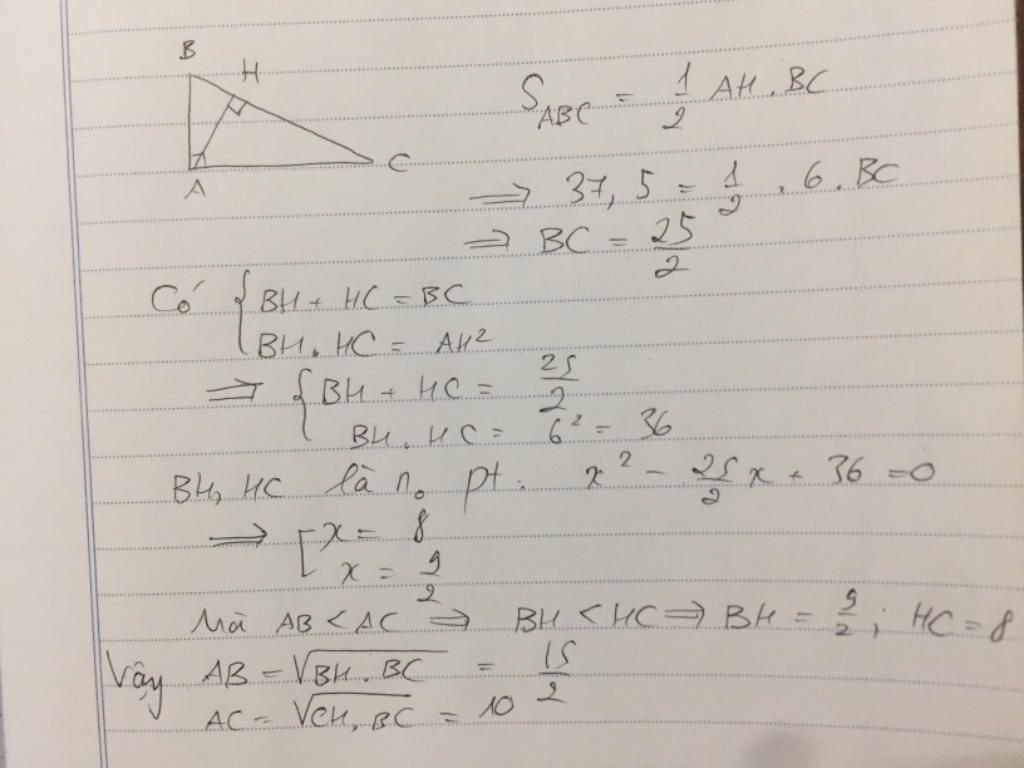 B
H
A
C
S_ABC = 1/2 AH . BC
⇒ 37,5 = 1/2 . 6 . BC
⇒ BC = 25/2
Có { BH + HC = BC
BH . HC = AH²
⇒ { BH + HC = 25/2
BH . HC = 6² = 36
BH, HC là no pt : x² - 25/2 x + 36 = 0
⇒ [ x = 8
x = 9/2
Mà AB < AC ⇒ BH < HC ⇒ BH = 9/2 ; HC = 8
Vậy AB = √BH . BC = 15/2
AC = √CH . BC = 10